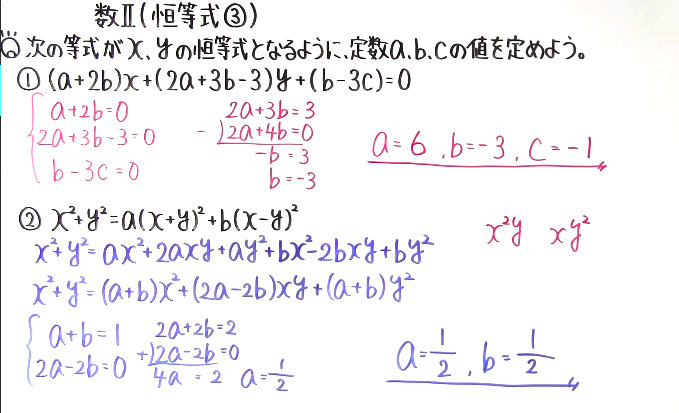 数Ⅱ(恒等式③)
Q 次の等式がx、yの恒等式となるように、定数a、b、cの値を定めよう。
① (a+2b)x+(2a+3b-3)y+(b-3c)=0
a+2b=0
2a+3b-3=0
b-3c=0
2a+3b=3
-)2a+4b=0
-b=3
b=-3
a=6、b=-3、c=-1
② x²+y²=a(x+y)²+b(x-y)²
x²y xy²
x²+y²=ax²+2axy+ay²+bx²-2bxy+by²
x²+y²=(a+b)x²+(2a-2b)xy+(a+b)y²
a+b=1
2a-2b=0
2a+2b=2
+)2a-2b=0
4a=2 a=1/2
a=1/2、b=1/2